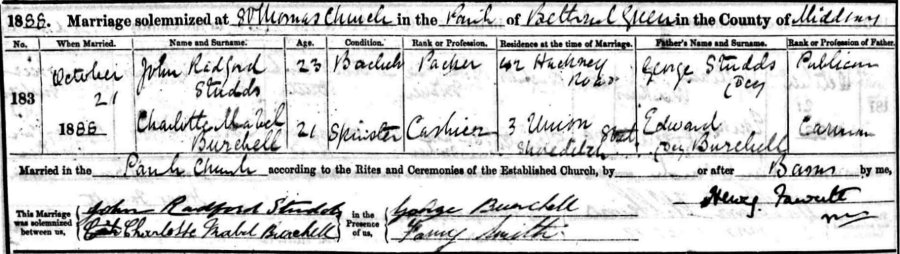 1888. Marriage solemnized at St Thomas Church in the Parish of Bethnal Green in the County of Middsex
No. When Married. Name and Surname. Age. Condition. Rank or Profession. Residence at the time of Marriage. Father's Name and Surname. Rank or Profession of Father.
183 October 21 1888 John Radford Studds 23 Bachelor Packer 42 Hackney Road George Studds (Dec) Publican
Charlotte Mabel Burchell 21 Spinster Cashier 3 Union Street Shoreditch Edward Burchell (Dec) Carman
Married in the Parish Church according to the Rites and Ceremonies of the Established Church, by or after Banns by me,
This Marriage was solemnized between us, John Radford Studds Charlotte Mabel Burchell in the Presence of us, George Burchell Fanny Smith Henry